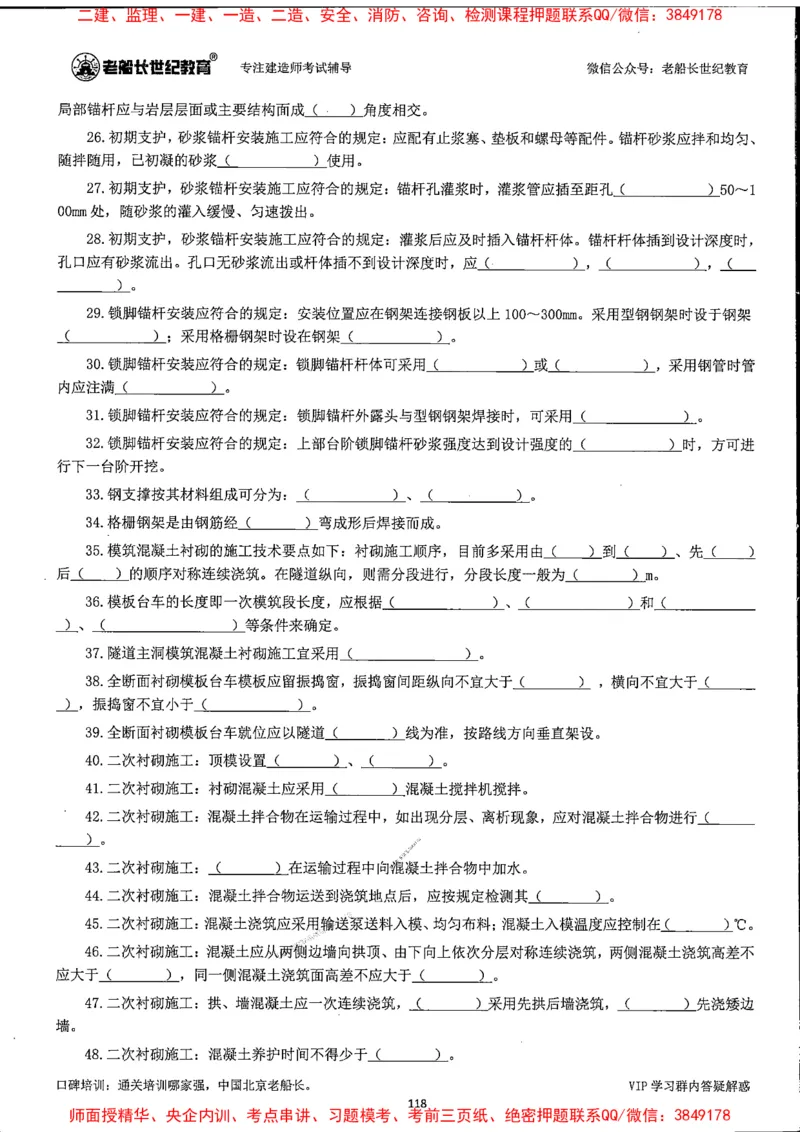 二建、监理、一建、一造、二造、安全、消防、咨询、检测课程押题联系QQ/微信：3849178
老船长世纪教育® 专注建造师考试辅导 微信公众号：老船长世纪教育
局部锚杆应与岩层层面或主要结构面成（ ）角度相交。
26.初期支护，砂浆锚杆安装施工应符合的规定：应配有止浆塞、垫板和螺母等配件。锚杆砂浆应拌和均匀、
随拌随用，已初凝的砂浆（ ）使用。
27.初期支护，砂浆锚杆安装施工应符合的规定：锚杆孔灌浆时，灌浆管应插至距孔（ ）50～1
00mm处，随砂浆的灌入缓慢、匀速拨出。
28.初期支护，砂浆锚杆安装施工应符合的规定：灌浆后应及时插入锚杆杆体。锚杆杆体插到设计深度时，
孔口应有砂浆流出。孔口无砂浆流出或杆体插不到设计深度时，应（ ），（ ），（
）。
29.锁脚锚杆安装应符合的规定：安装位置应在钢架连接钢板以上100～300mm。采用型钢钢架时设于钢架
（ ）；采用格栅钢架时设在钢架（ ）。
30.锁脚锚杆安装应符合的规定：锁脚锚杆杆体可采用（ ）或（ ），采用钢管时管
内应注满（ ）。
31.锁脚锚杆安装应符合的规定：锁脚锚杆外露头与型钢钢架焊接时，可采用（ ）。
32.锁脚锚杆安装应符合的规定：上部台阶锁脚锚杆砂浆强度达到设计强度的（ ）时，方可进
行下一台阶开挖。
33.钢支撑按其材料组成可分为：（ ）、（ ）。
34.格栅钢架是由钢筋经（ ）弯成形后焊接而成。
35.模筑混凝土衬砌的施工技术要点如下：衬砌施工顺序，目前多采用由（ ）到（ ）、先（ ）
后（ ）的顺序对称连续浇筑。在隧道纵向，则需分段进行，分段长度一般为（ ）m。
36.模板台车的长度即一次模筑段长度，应根据（ ）、（ ）和（
）、（ ）等条件来确定。
37.隧道主洞模筑混凝土衬砌施工宜采用（ ）。
38.全断面衬砌模板台车模板应留振捣窗，振捣窗间距纵向不宜大于（ ），横向不宜大于（
），振捣窗不宜小于（ ）。
39.全断面衬砌模板台车就位应以隧道（ ）线为准，按路线方向垂直架设。
40.二次衬砌施工：顶模设置（ ）、（ ）。
41.二次衬砌施工：衬砌混凝土应采用（ ）混凝土搅拌机搅拌。
42.二次衬砌施工：混凝土拌合物在运输过程中，如出现分层、离析现象，应对混凝土拌合物进行（
）。
43.二次衬砌施工：（ ）在运输过程中向混凝土拌合物中加水。
44.二次衬砌施工：混凝土拌合物运送到浇筑地点后，应按规定检测其（ ）。
45.二次衬砌施工：混凝土浇筑应采用输送泵送料入模、均匀布料；混凝土入模温度应控制在（ ）℃。
46.二次衬砌施工：混凝土应从两侧边墙向拱顶、由下向上依次分层对称连续浇筑，两侧混凝土浇筑高差不
应大于（ ），同一侧混凝土浇筑面高差不应大于（ ）。
47.二次衬砌施工：拱、墙混凝土应一次连续浇筑，（ ）采用先拱后墙浇筑，（ ）先浇矮边
墙。
48.二次衬砌施工：混凝土养护时间不得少于（ ）。
口碑培训：通关培训哪家强，中国北京老船长。 VIP学习群内答疑解惑
118
师面授精华、央企内训、考点串讲、习题模考、考前三页纸、绝密押题联系QQ/微信：3849178